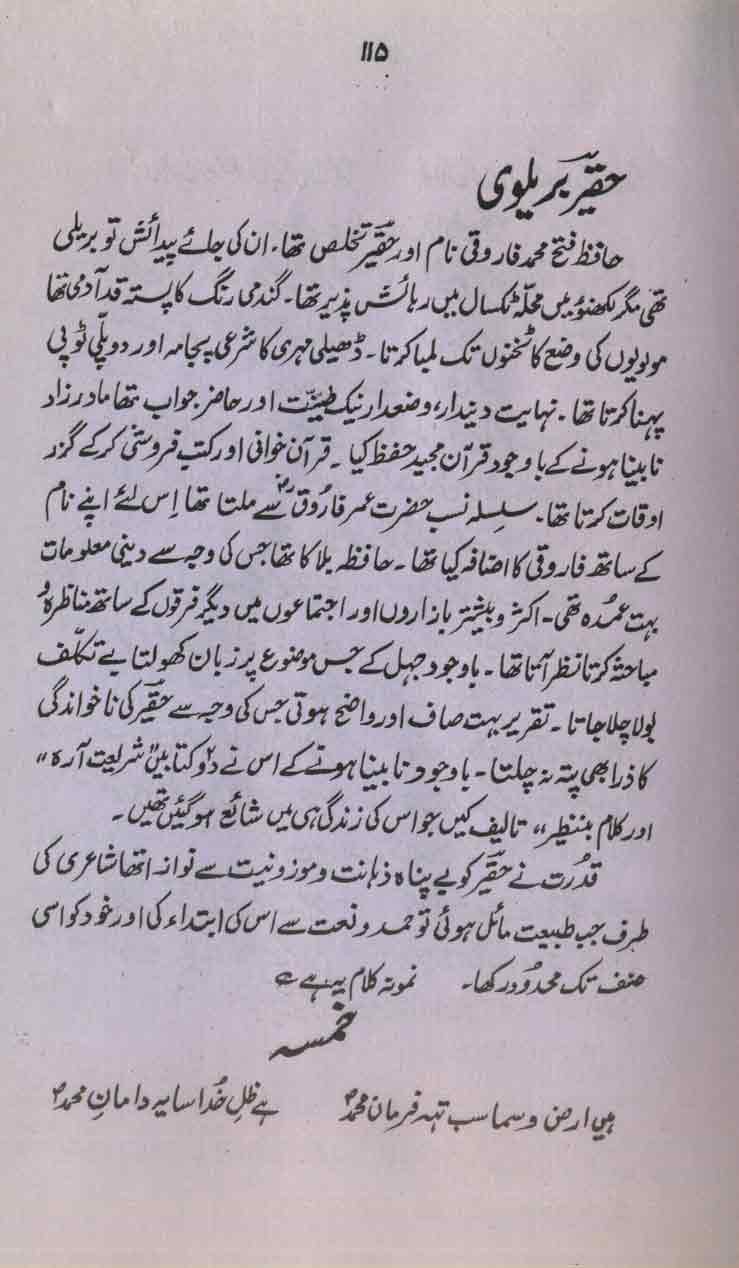 ۱۱۵
حقیر بریلوی
حافظ فتح محمد فاروقی نام اور حقیر تخلص تھا۔ ان کی جائے پیدائش تو بریلی
تھی مگر لکھنؤ میں محلّہ ٹکسال میں رہائش پذیر تھا۔ گندمی رنگ کا پستہ قد آدمی تھا
مولویوں کی وضع کا ٹخنوں تک لمبا کرتا۔ ڈھیلی مہری کا شرعی پجامہ اور دوپلّی ٹوپی
پہنا کرتا تھا۔ نہایت دیندار، وضعدار نیک طبیّت اور حاضر جواب تھا مادر زاد
نابینا ہونے کے باوجود قرآن مجید حفظ کیا۔ قرآن خوانی اور کتب فروشی کرکے گزر
اوقات کرتا تھا۔ سلسِلہ نسب حضرت عمر فاروقؓ سے ملتا تھا اِس لئے اپنے نام
کے ساتھ فاروقی کا اضافہ کیا تھا۔ حافظہ بلا کا تھا جس کی وجہ سے دینی معلومات
بہت عمدہ تھی۔ اکثر و بیشتر بازاروں اور اجتماعوں میں دیگر فرقوں کے ساتھ مناظرہ و
مباحثہ کرتا نظر آتا تھا۔ باوجود جہل کے جس موضوع پر زبان کھولتا بے تکلّف
بولا چلا جاتا۔ تقریر بہت صاف اور واضح ہوتی جس کی وجہ سے حقیر کی ناخواندگی
کا ذرا بھی پتہ نہ چلتا۔ باوجود نابینا ہونے کے اس نے دو۲ کتابیں "شریعت آرہ"
اور کلام بےنظیر" تالیف کیں جو اس کی زندگی ہی میں شائع ہو گئیں تھیں۔
قدرت نے حقیر کو بے پناہ ذہانت و موزونیت سے نوازا تھا شاعری کی
طرف جب طبیعت مائل ہوئی تو حمد و نعت سے اس کی ابتداء کی اور خود کو اسی
صنف تک محدود رکھا۔ نمونہ کلام یہ ہے ؎
خمسہ
ہیں ارض و سما سب تہہ فرمان محمدؐ ہے ظلِ خُدا سایہ دامانِ محمدؐ